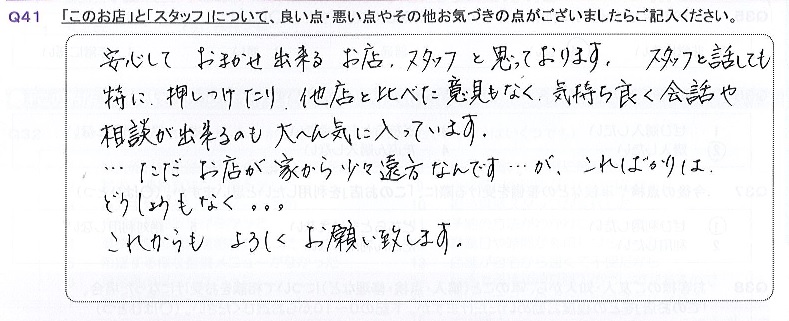 Q41 「このお店」と「スタッフ」について、良い点・悪い点やその他お気づきの点がございましたらご記入ください。
安心して おまかせ出来る お店、スタッフ と思っております。 スタッフと話しても
特に、押しつけたり、他店と比べた意見もなく、気持ち良く会話や
相談が出来るのも 大へん気に入っています。
… ただ お店が 家から 少々遠方なんです…が、こればかりは、
どうしようもなく。。。
これからも よろしく お願い致します。